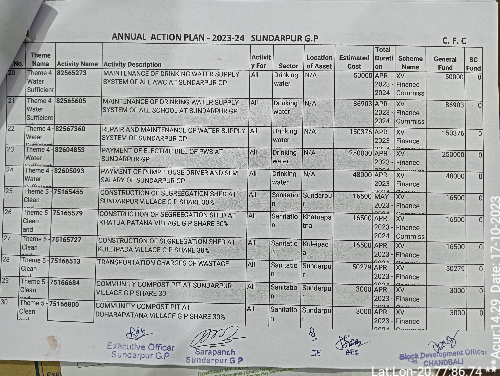 ANNUAL ACTION PLAN - 2023-24 SUNDARPUR G.P C. F. C
Theme Name Activity Name Activity Description Activit y For Sector Location of Asset Estimated Cost Total Durati on Scheme Name General Fund SC Fund
20 Theme 4 - Water Sufficient 82565273 MAINTENANCE OF DRINKING WATER SUPPLY SYSTEM OF ALL AWC AT SUNDARPUR GP All Drinking water N/A 50000 APR 2023 2024 XV Finance Commiss 50000 0
21 Theme 4 - Water Sufficient 82565605 MAINTENANCE OF DRINKING WATER SUPPLY SYSTEM OF ALL SCHOOL AT SUNDARPUR GP All Drinking water N/A 86903 APR 2023 2024 XV Finance Commiss 86903 0
22 Theme 4 - Water 82567360 REPAIR AND MAINTENANCE OF WATER SUPPLY SYSTEM OF SUNDARPUR GP All Drinking water N/A 150376 APR 2023 XV Finance 150376 0
23 Theme 4 - Water 82604853 PAYMENT OF ELECTRIC BILL OF PWS AT SUNDARPUR GP All Drinking water 250000 APR 2023 XV Finance 250000 0
24 Theme 4 - Water 82605093 PAYMENT OF PUMP HOUSE DRIVER AND SEM SALARY OF SUNDARPUR GP All Drinking water N/A 48000 APR 2023 XV Finance 48000 0
25 Theme 5 - Clean 75165455 CONSTRUCTION OF SEGREGATION SHED AT SUNDARPUR VILLAGE G P SHARE 30% All Sanitatio n Sundarpu 16500 MAY 2023 XV Finance 16500 0
26 Theme 5 - Clean and 75165579 CONSTRUCTION OF SEGREEGATION SHED AT KHATUA PATANA VILLAGE G P SHARE 30% All Sanitatio n Khatuapa tna 16500 APR 2023 2024 XV Finance Commiss 16500 0
27 Theme 5 - Clean 75165727 CONSTRUCTION OF SEGREEGATION SHED AT VILLAGE G P SHARE 30% All Sanitatio n 16500 APR 2023 XV Finance 16500 0
28 Theme 5 - Clean 75166513 TRANSPORTATION CHARGES OF WASTAGE All Sanitatio n Sundarpu 30279 APR 2023 XV Finance 30279 0
29 Theme 5 - Clean 75166684 COMMUNITY COMPOST PIT AT SUNDARPUR VILLAGE GP SHARE 30 All Sanitatio n Sundarpu 3000 APR 2023 XV Finance 3000 0
30 Theme 5 - Clean 75166800 COMMUNITY COMPOST PIT AT DOHARAPATANA VILLAGE G P SHARE 30% All Sanitatio n Sundarpu 3000 APR 2023 XV Finance 3000 0
Executive Officer
Sundarpur G.P
Sarapanch
Sundarpur G.P
JE
Block Development Officer
CHANDBALI
Lat Lon-20.77/86.74 **